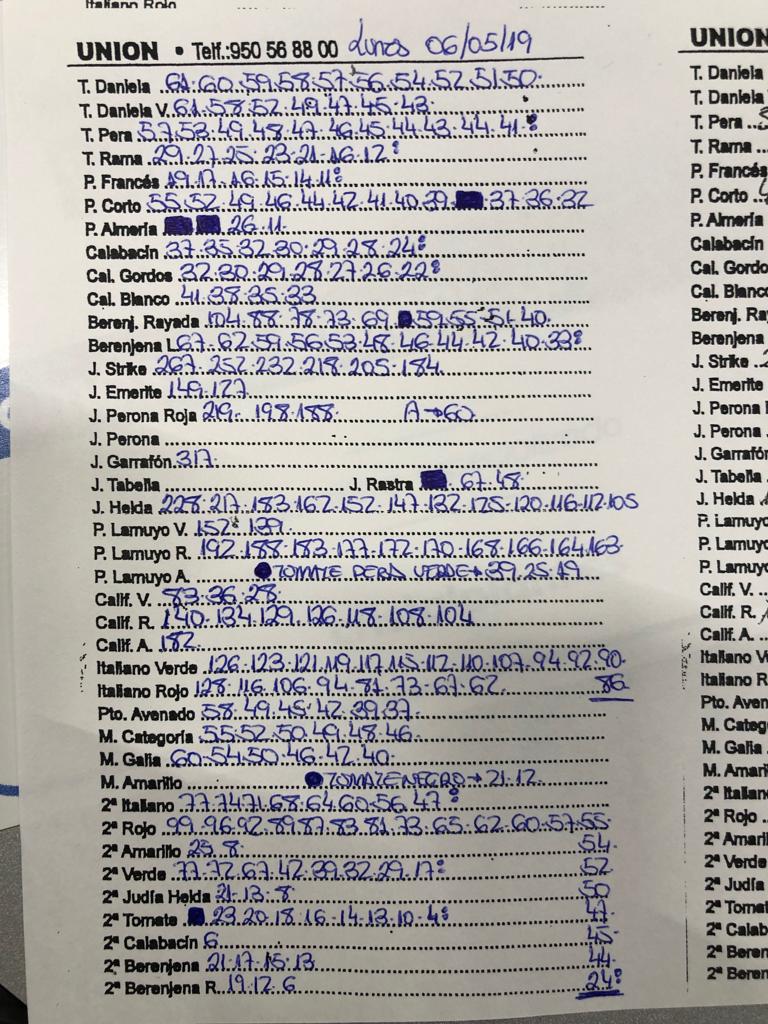 Italiano Rojo
UNION • Telf.:950 56 88 00 Lunes 06/05/19
T. Daniela 61·60·59·58·57·56·54·52·51·50·
T. Daniela V. 61·58·52·49·47·45·43·
T. Pera 57·53·49·48·47·46·45·44·43·44·41·
T. Rama 29·27·25·23·21·16·12·
P. Francés 19·17·16·15·14·11·
P. Corto 55·52·49·46·44·42·41·40·39·37·36·32
P. Almería 26·11·
Calabacín 37·35·32·30·29·28·24·
Cal. Gordos 32·30·29·28·27·26·22·
Cal. Blanco 41·38·35·33
Berenj. Rayada 104·88·78·73·69·59·55·51·40·
Berenjena L 67·62·59·56·53·48·46·44·42·40·33·
J. Strike 267·252·232·218·205·184
J. Emerite 149·127
J. Perona Roja 219·198·188· A→60
J. Perona
J. Garrafón 317
J. Tabella J. Rastra 67·48·
J. Helda 228·217·183·162·152·147·132·125·120·116·112·105
P. Lamuyo V. 152·139
P. Lamuyo R. 192·188·183·177·172·170·168·166·164·163·
P. Lamuyo A. TOMATE PERA VERDE→39·25·19
Calif. V. 83·36·28·
Calif. R. 140·134·129·126·118·108·104
Calif. A. 182
Italiano Verde 126·123·121·119·117·115·112·110·107·94·92·90·
Italiano Rojo 128·116·106·94·81·73·67·62 86
Pto. Avenado 58·49·45·42·39·37·
M. Categoría 55·52·50·49·48·46·
M. Galia 60·54·50·46·42·40·
M. Amarillo TOMATE NEGRO→21·12·
2ª Italiano 77·74·71·68·64·60·56·47·
2ª Rojo 99·96·92·89·87·83·81·73·65·62·60·57·55
2ª Amarillo 25·8· 54
2ª Verde 77·72·67·42·39·32·29·17· 52
2ª Judía Helda 21·13·8 50
2ª Tomate 23·20·18·16·14·13·10·4· 47
2ª Calabacín 6 45
2ª Berenjena 21·17·15·13 44
2ª Berenjena R. 19·12·6 24·
UNION
T. Daniela
T. Daniela
T. Pera
T. Rama
P. Francés
P. Corto
P. Almería
Calabacín
Cal. Gordo
Cal. Blanc
Berenj. Ra
Berenjena
J. Strike
J. Emerite
J. Perona
J. Perona
J. Garrafó
J. Tabella
J. Helda
P. Lamuyo
P. Lamuyo
P. Lamuyo
Calif. V.
Calif. R.
Calif. A.
Italiano Ve
Italiano R
Pto. Aven
M. Catego
M. Galia
M. Amari
2ª Italian
2ª Rojo
2ª Amari
2ª Verde
2ª Judía
2ª Tomat
2ª Calab
2ª Beren
2ª Beren